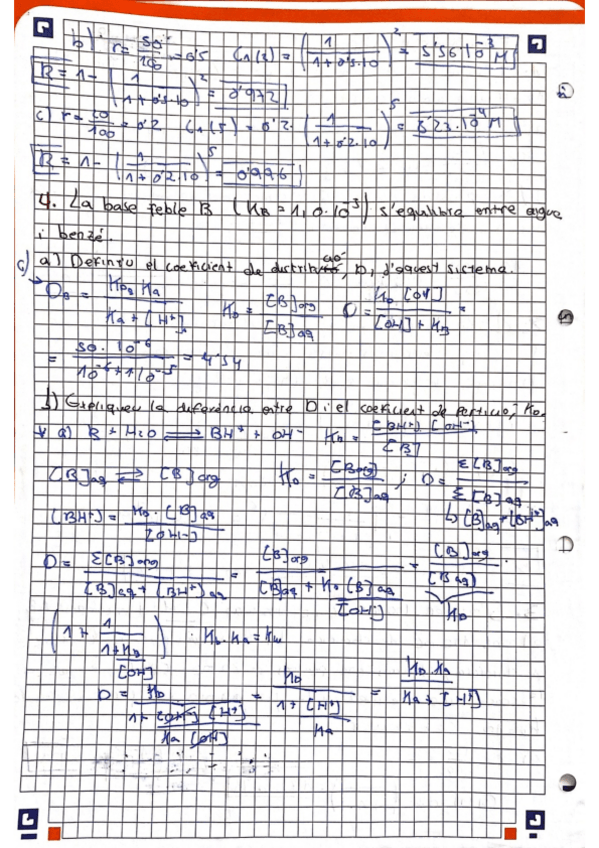 b) r = 50/100 = 0'5 C1(2) = (1/(1+0'5·10))^2 = 5'56·10^-3 M
R = 1 - (1/(1+0'5·10))^2 = 0'972
c) r = 20/100 = 0'2 C1(5) = 0'2 · (1/(1+0'2·10))^5 = 8'23·10^-4 M
R = 1 - (1/(1+0'2·10))^5 = 0'996
4. La base feble B (KB = 1,0·10^-3) s'equilibra entre aigua
i benzé.
c) a) Definiu el coeficient de distribució, D, d'aquest sistema.
DB = KDB Ka / (Ka + [H+]) KD = [B]org / [B]aq D = KD [OH] / ([OH] + KB) =
= 50·10^-6 / (10^-6 + 1·10^-5) = 4'54
b) Expliqueu la diferència entre D i el coeficient de partició, KD.
a) B + H2O ⇌ BH+ + OH- KB = [BH+] [OH-] / [B]
[B]aq ⇌ [B]org KD = [B]org / [B]aq ; D = Σ[B]org / Σ[B]aq
↳ [B]aq + [BH+]aq
[BH+] = Kb · [B]aq / [OH-]
D = Σ[B]org / ([B]aq + [BH+]aq) = [B]org / ([B]aq + Kb [B]aq / [OH-]) = [B]org / [B]aq ·
KD
(1 + 1 / (1 + Kb / [OH])) · Kb · Ka = Kw
D = KD / (1 + [OH-] [H+] / (Ka [OH])) = KD / (1 + [H+] / Ka) = KD · Ka / (Ka + [H+])